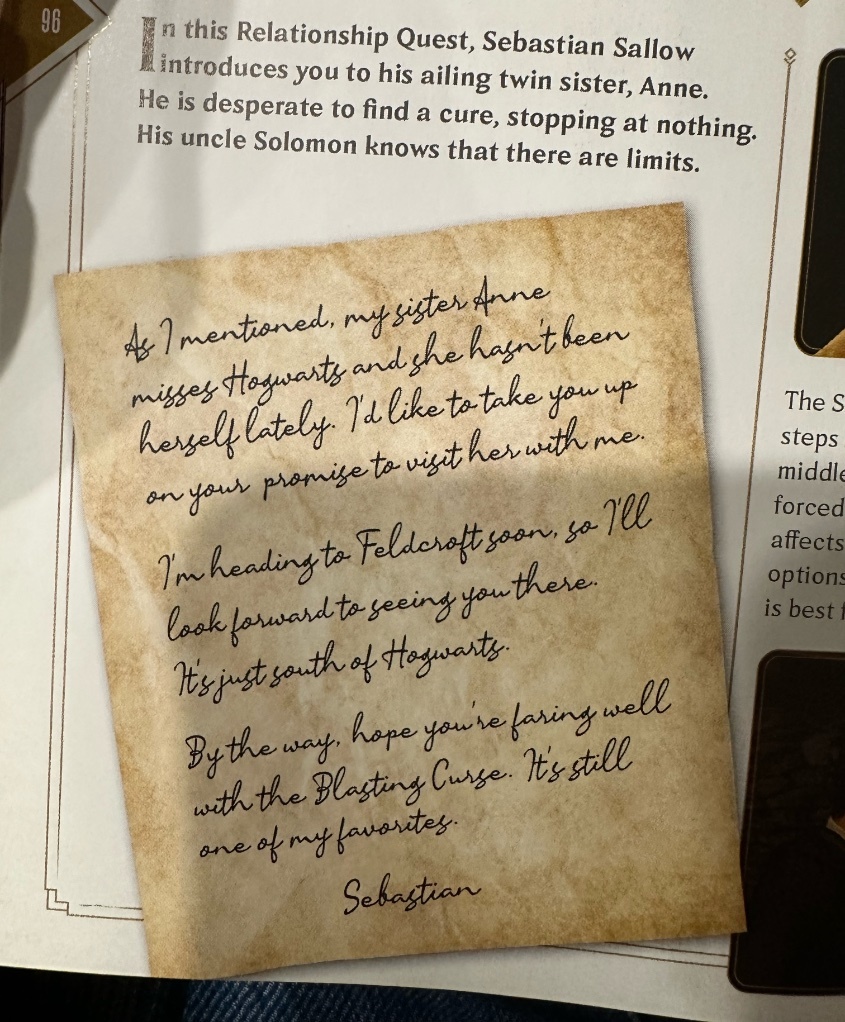 96
In this Relationship Quest, Sebastian Sallow
introduces you to his ailing twin sister, Anne.
He is desperate to find a cure, stopping at nothing.
His uncle Solomon knows that there are limits.
As I mentioned, my sister Anne
misses Hogwarts and she hasn't been
herself lately. I'd like to take you up
on your promise to visit her with me.
I'm heading to Feldcroft soon, so I'll
look forward to seeing you there.
It's just south of Hogwarts.
By the way, hope you're faring well
with the Blasting Curse. It's still
one of my favorites.
Sebastian
The S
steps
middle
forced
affects
options
is best